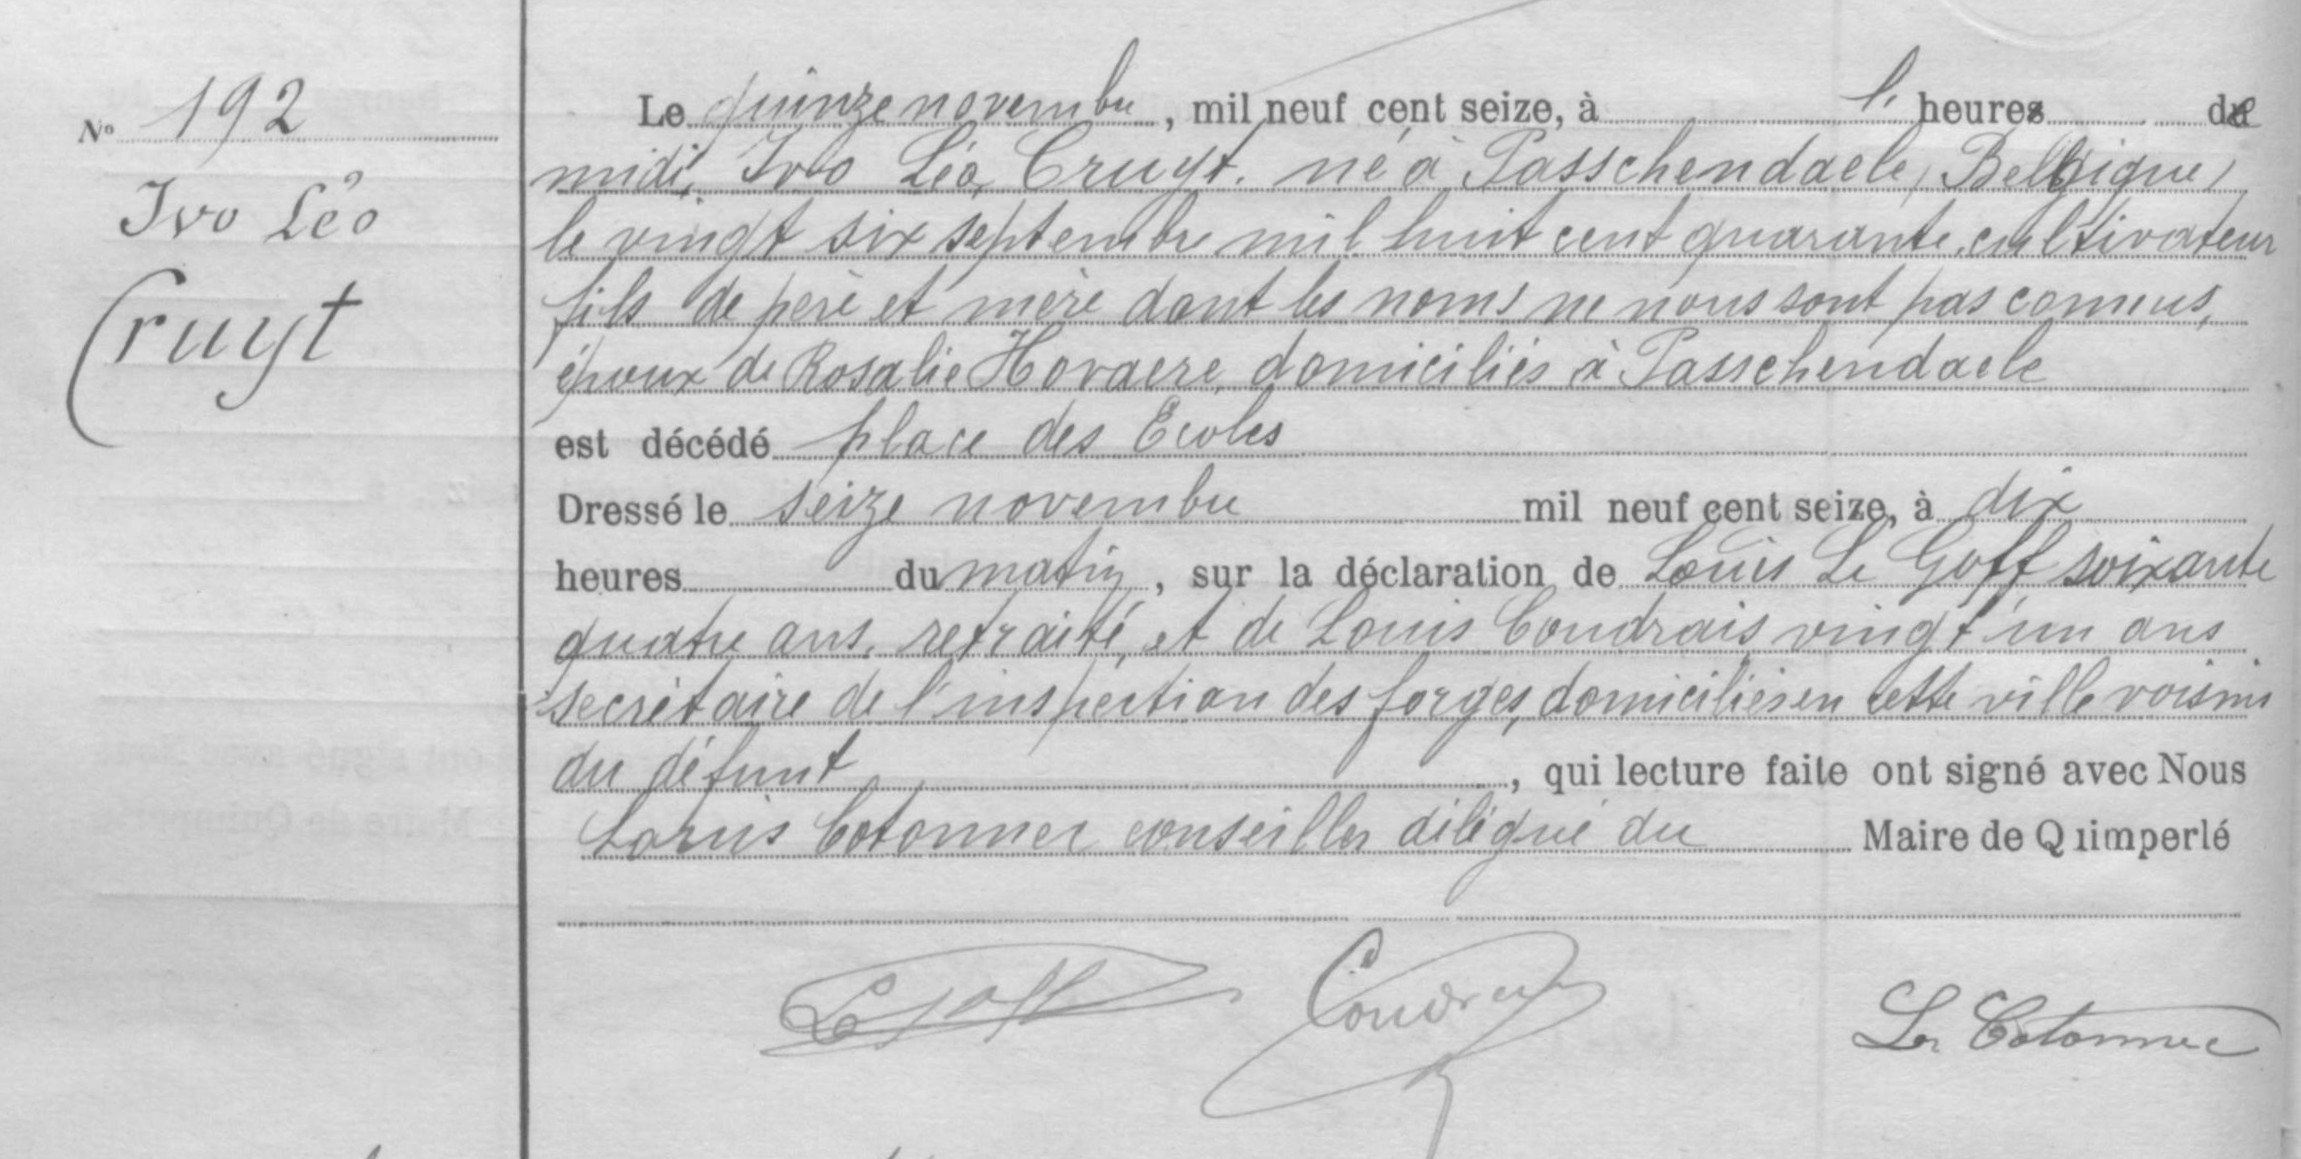 N° 192
Ivo Léo
Cruyt
Le quinze novembre, mil neuf cent seize, à l' heure de
midi, Ivo Léo Cruyt, né à Passchendaele (Belgique)
le vingt six septembre mil huit cent quarante, cultivateur
fils de père et mère dont les noms ne nous sont pas connus,
époux de Rosalie Hovaere, domiciliés à Passchendaele
est décédé place des Ecoles
Dressé le seize novembre mil neuf cent seize, à dix
heures du matin, sur la déclaration de Louis Le Goff soixante
quatre ans, retraité, et de Louis Coudrais vingt un ans
secrétaire de l'inspection des forges, domiciliés en cette ville voisins
du défunt, qui lecture faite ont signé avec Nous
Louis Cotonnec conseiller délégué du Maire de Quimperlé
Le Goff Coudrais Ls Cotonnec